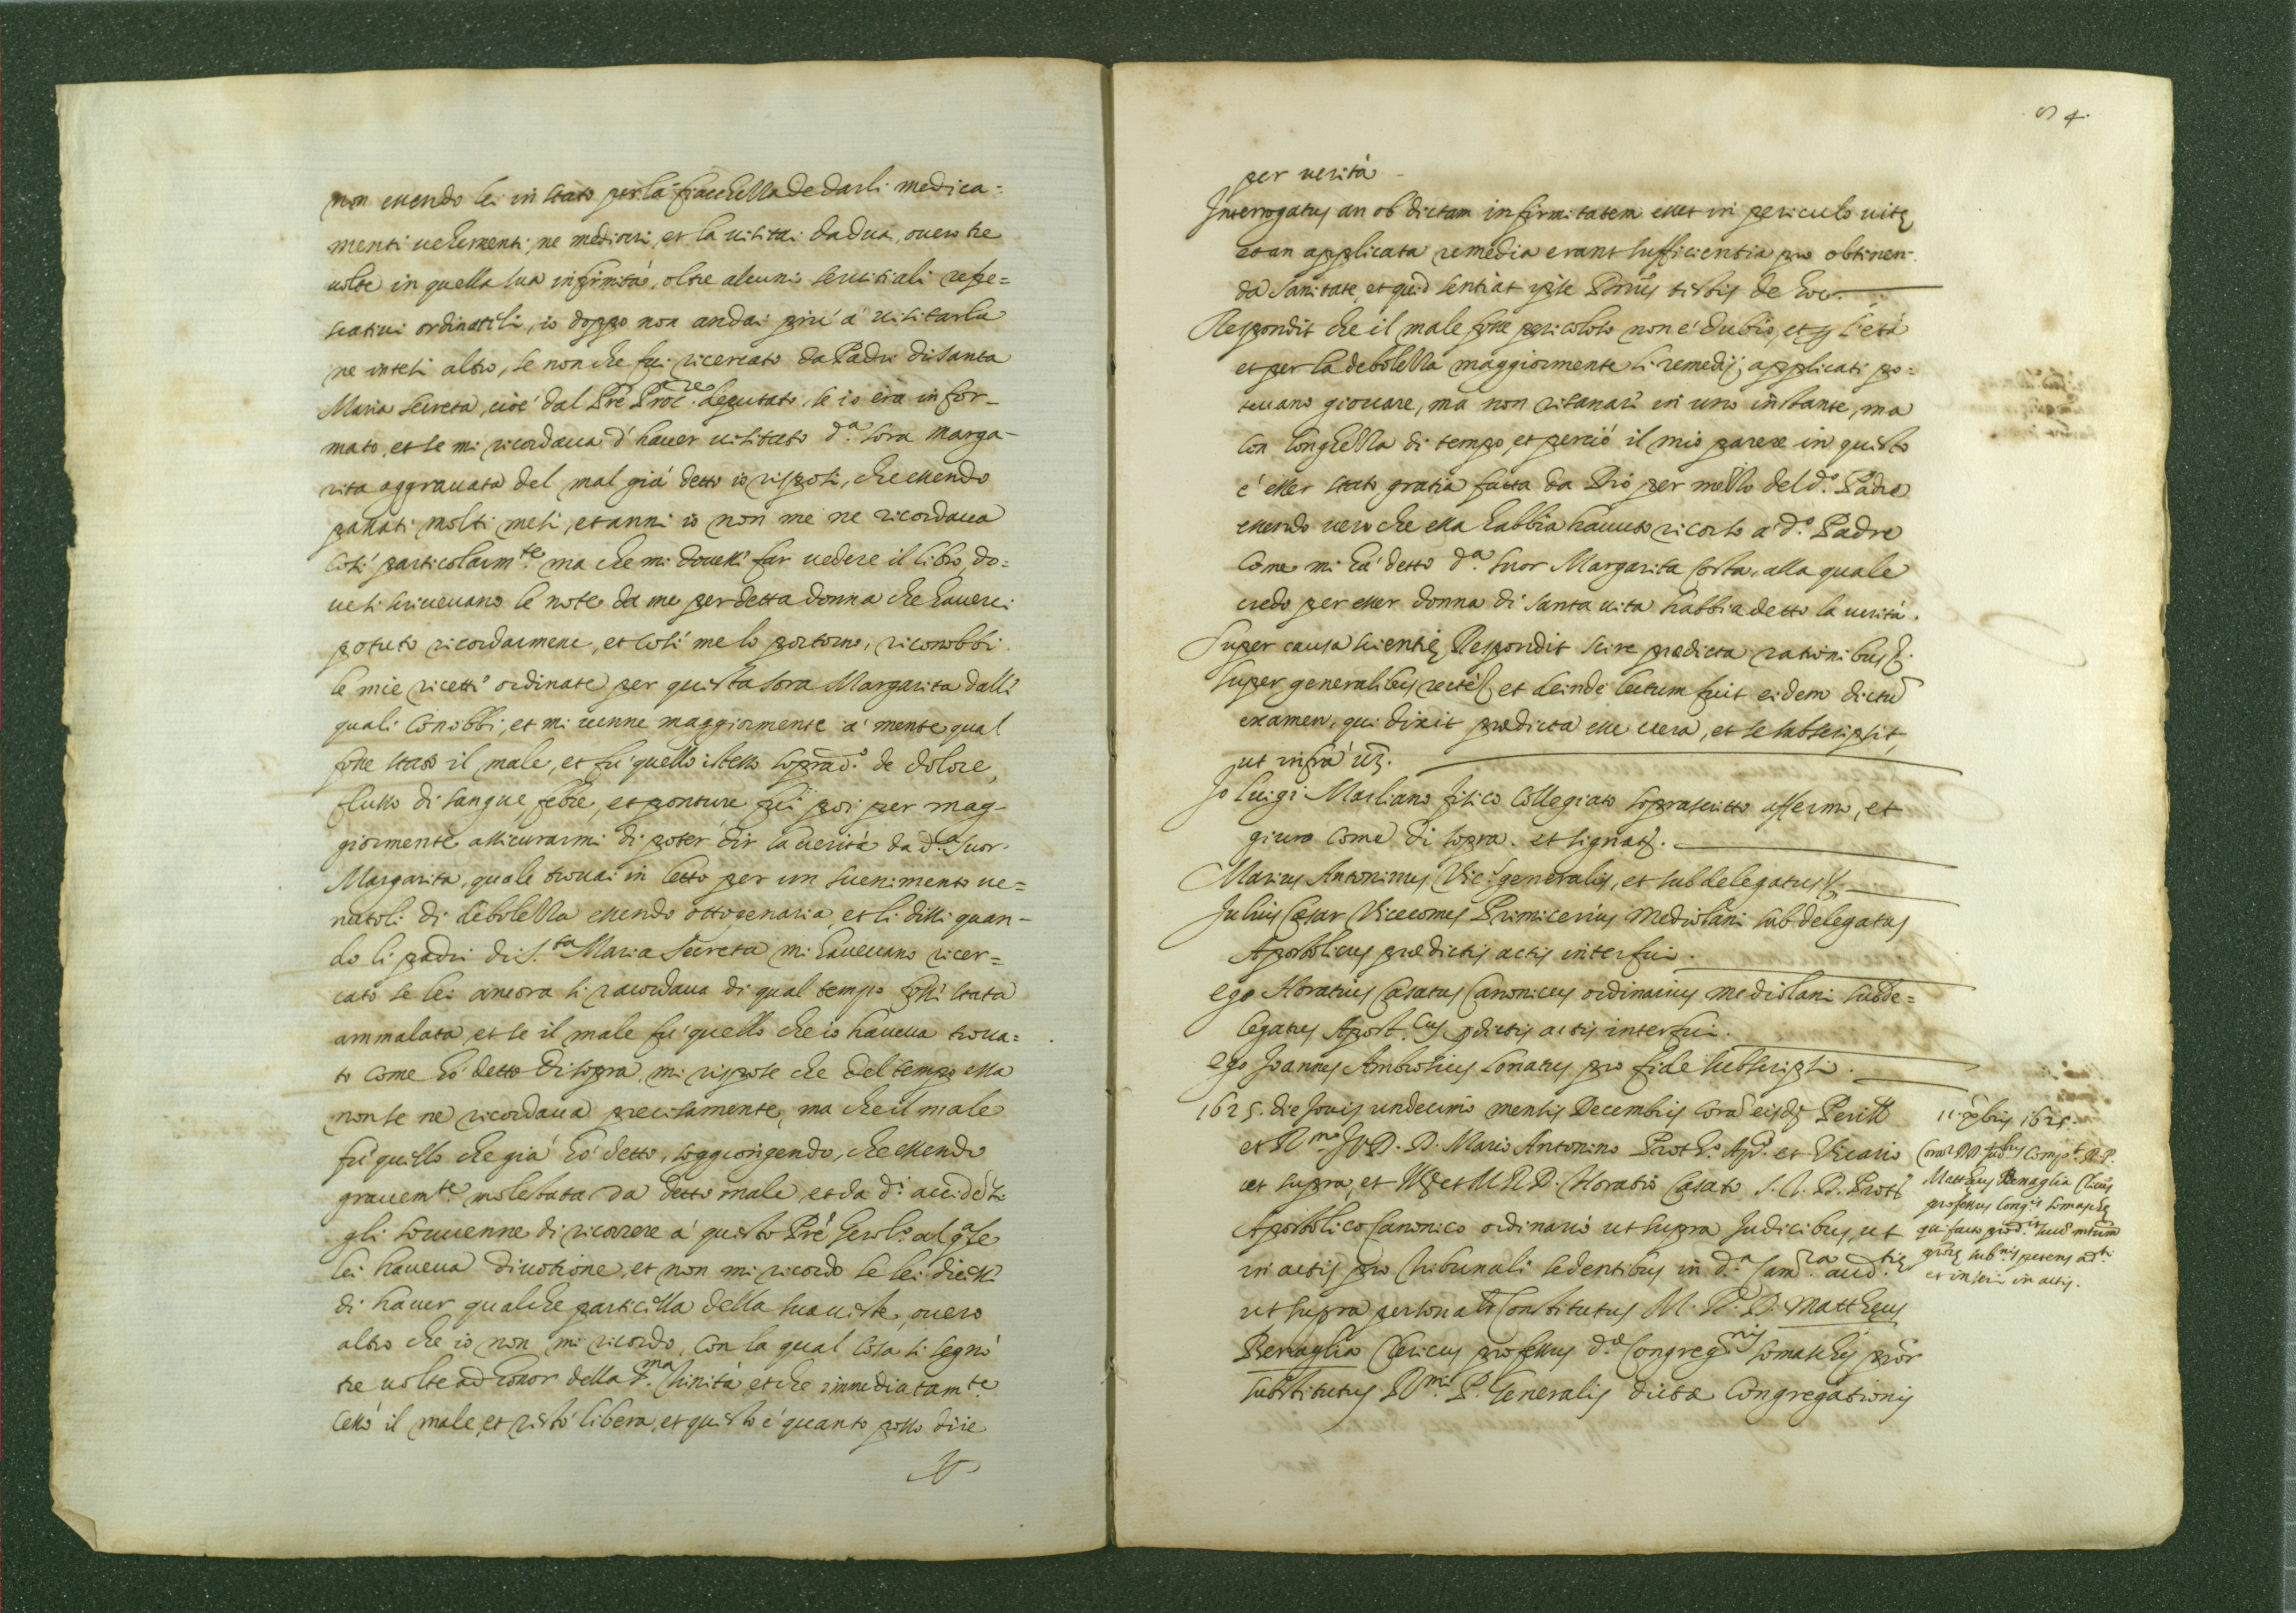 non essendo lei in stato per la fiacchezza de darli medica=
menti uehementi, ne mediocri, et la uisitai da dua, ouero tre
uolte in quella sua infirmità, oltre alcuni seruitiali refre=
scatiui ordinatili, io doppo non andai più à uisitarla
ne intesi altro, se non che fui ricercato da Padri di Santa
Maria Secreta, cioè dal Pre Proc.re deputato, se io era infor-
mato, et se mi ricordaua d'hauer uisitato d.a sora Marga-
rita aggrauata del mal già detto io risposi, che essendo
passati molti mesi, et anni io non me ne ricordaua
così particolarm.te ma che mi douessi far uedere il libro, do=
ue si scriueuano le note da me per detta donna che hauerei
potuto ricordarmene, et così me lo portorno, riconobbi
le mie ricette ordinate per questa sora Margarita dalli
quali conobbi, et mi uenne maggiormente à mente qual
fosse stato il male, et fu quello istesso soprad.o de dolore,
flusso di sangue, febre, et ponture fui poi per mag-
giormente assicurarmi di poter dir la uerità da d.a Suor
Margarita, quale trouai in letto per un suenimento ue=
nutoli di debolezza essendo ottogenaria, et li dissi quan-
do li padri di S.ta Maria Secreta mi haueuano ricer=
cato se lei ancora si racordaua di qual tempo fosse stata
ammalata, et se il male fu quello che io haueua troua=
to come hò detto di sopra, mi rispose che del tempo essa
non se ne ricordaua precisamente, ma che il male
fù quello che già hò detto, soggiongendo, che essendo
grauem.te molestata da detto male, et da d.i accidēti
gli souuenne di ricorrere à questo Prē Gerol.o al q.ale
lei haueua diuotione, et non mi ricordo se lei dicessi
di hauer qualche particella della sua ueste, ouero
altro che io non mi ricordo, con la qual cosa si segnò
tre uolte ad honor della S.ma Trinità, et che immediatam.te
cessò il male, et restò libera, et questo è quanto posso dire
54.
per uerità
Interrogatus an ob dictam infirmitatem esset in periculo uitę
et an applicata remedia erant sufficientia pro obtinen-
da sanitate, et quid sentiat ipse Dnus testis de hoc.
Respondit che il male fosse pericoloso non è dubio, et p l'età
et per la debolezza maggiormente li remedij applicati po=
teuano giouare, ma non risanarò in uno instante, ma
con longhezza di tempo, et perciò il mio parere in questo
è esser stato gratia fatta da Dio per mezzo del d.o Padre
essendo uero che essa habbia hauuto ricorso à d.o Padre
come mi hà detto d.a Suor Margarita Corta, alla quale
credo per esser donna di santa uita habbia detto la uerità.
Super causa scientię Respondit scire prædicta rationibus
super generalibus recte et deinde lectum fuit eidem dictū
examen, qui dixit prædicta esse uera, et se subscripsit,
ut infrà uz.
Io luigi Marliano fisico Collegiato soprascritto affermo, et
giuro come di sopra. et signat.
Marius Antoninus Vic.s generalis, et subdelegatus
Julius Cæsar Vicecomes Primicerius Mediolani subdelegatus
Apostolicus prædictis actis interfui.
ego Horatius Casatus Canonicus ordinarius Mediolani subde=
legatus Apost.cus pdictis actis interfui.
ego Joannes Ambrosius Lonatus pro fide subscripsi.
1625. die Jouis undecimo mensis Decembris corā eisdē Perill
et R.mo JVD. D. Mario Antonino Proth.o Ap. et Vicario
ut supra, et et M R D. Horatio Casato J. V. D. Prott
Apostolico Canonico ordinario ut supra Judicibus, ut
in actis pro tribunali sedentibus in d.a Cam.ra aud.tię
ut supra personalr Constitutus M. R. D. Mattheus
Benaglia Clericus professus d.æ Congreg.nis Somaschę pror
substitutus R.mi P. Generalis dictæ Congregationis
11. Xbris 1625.
Corā DD. Jud.bus Comp.t R. P.
Mattheus Benaglia Clicus
professus Cong.is Somaschę
et inseri in actis.